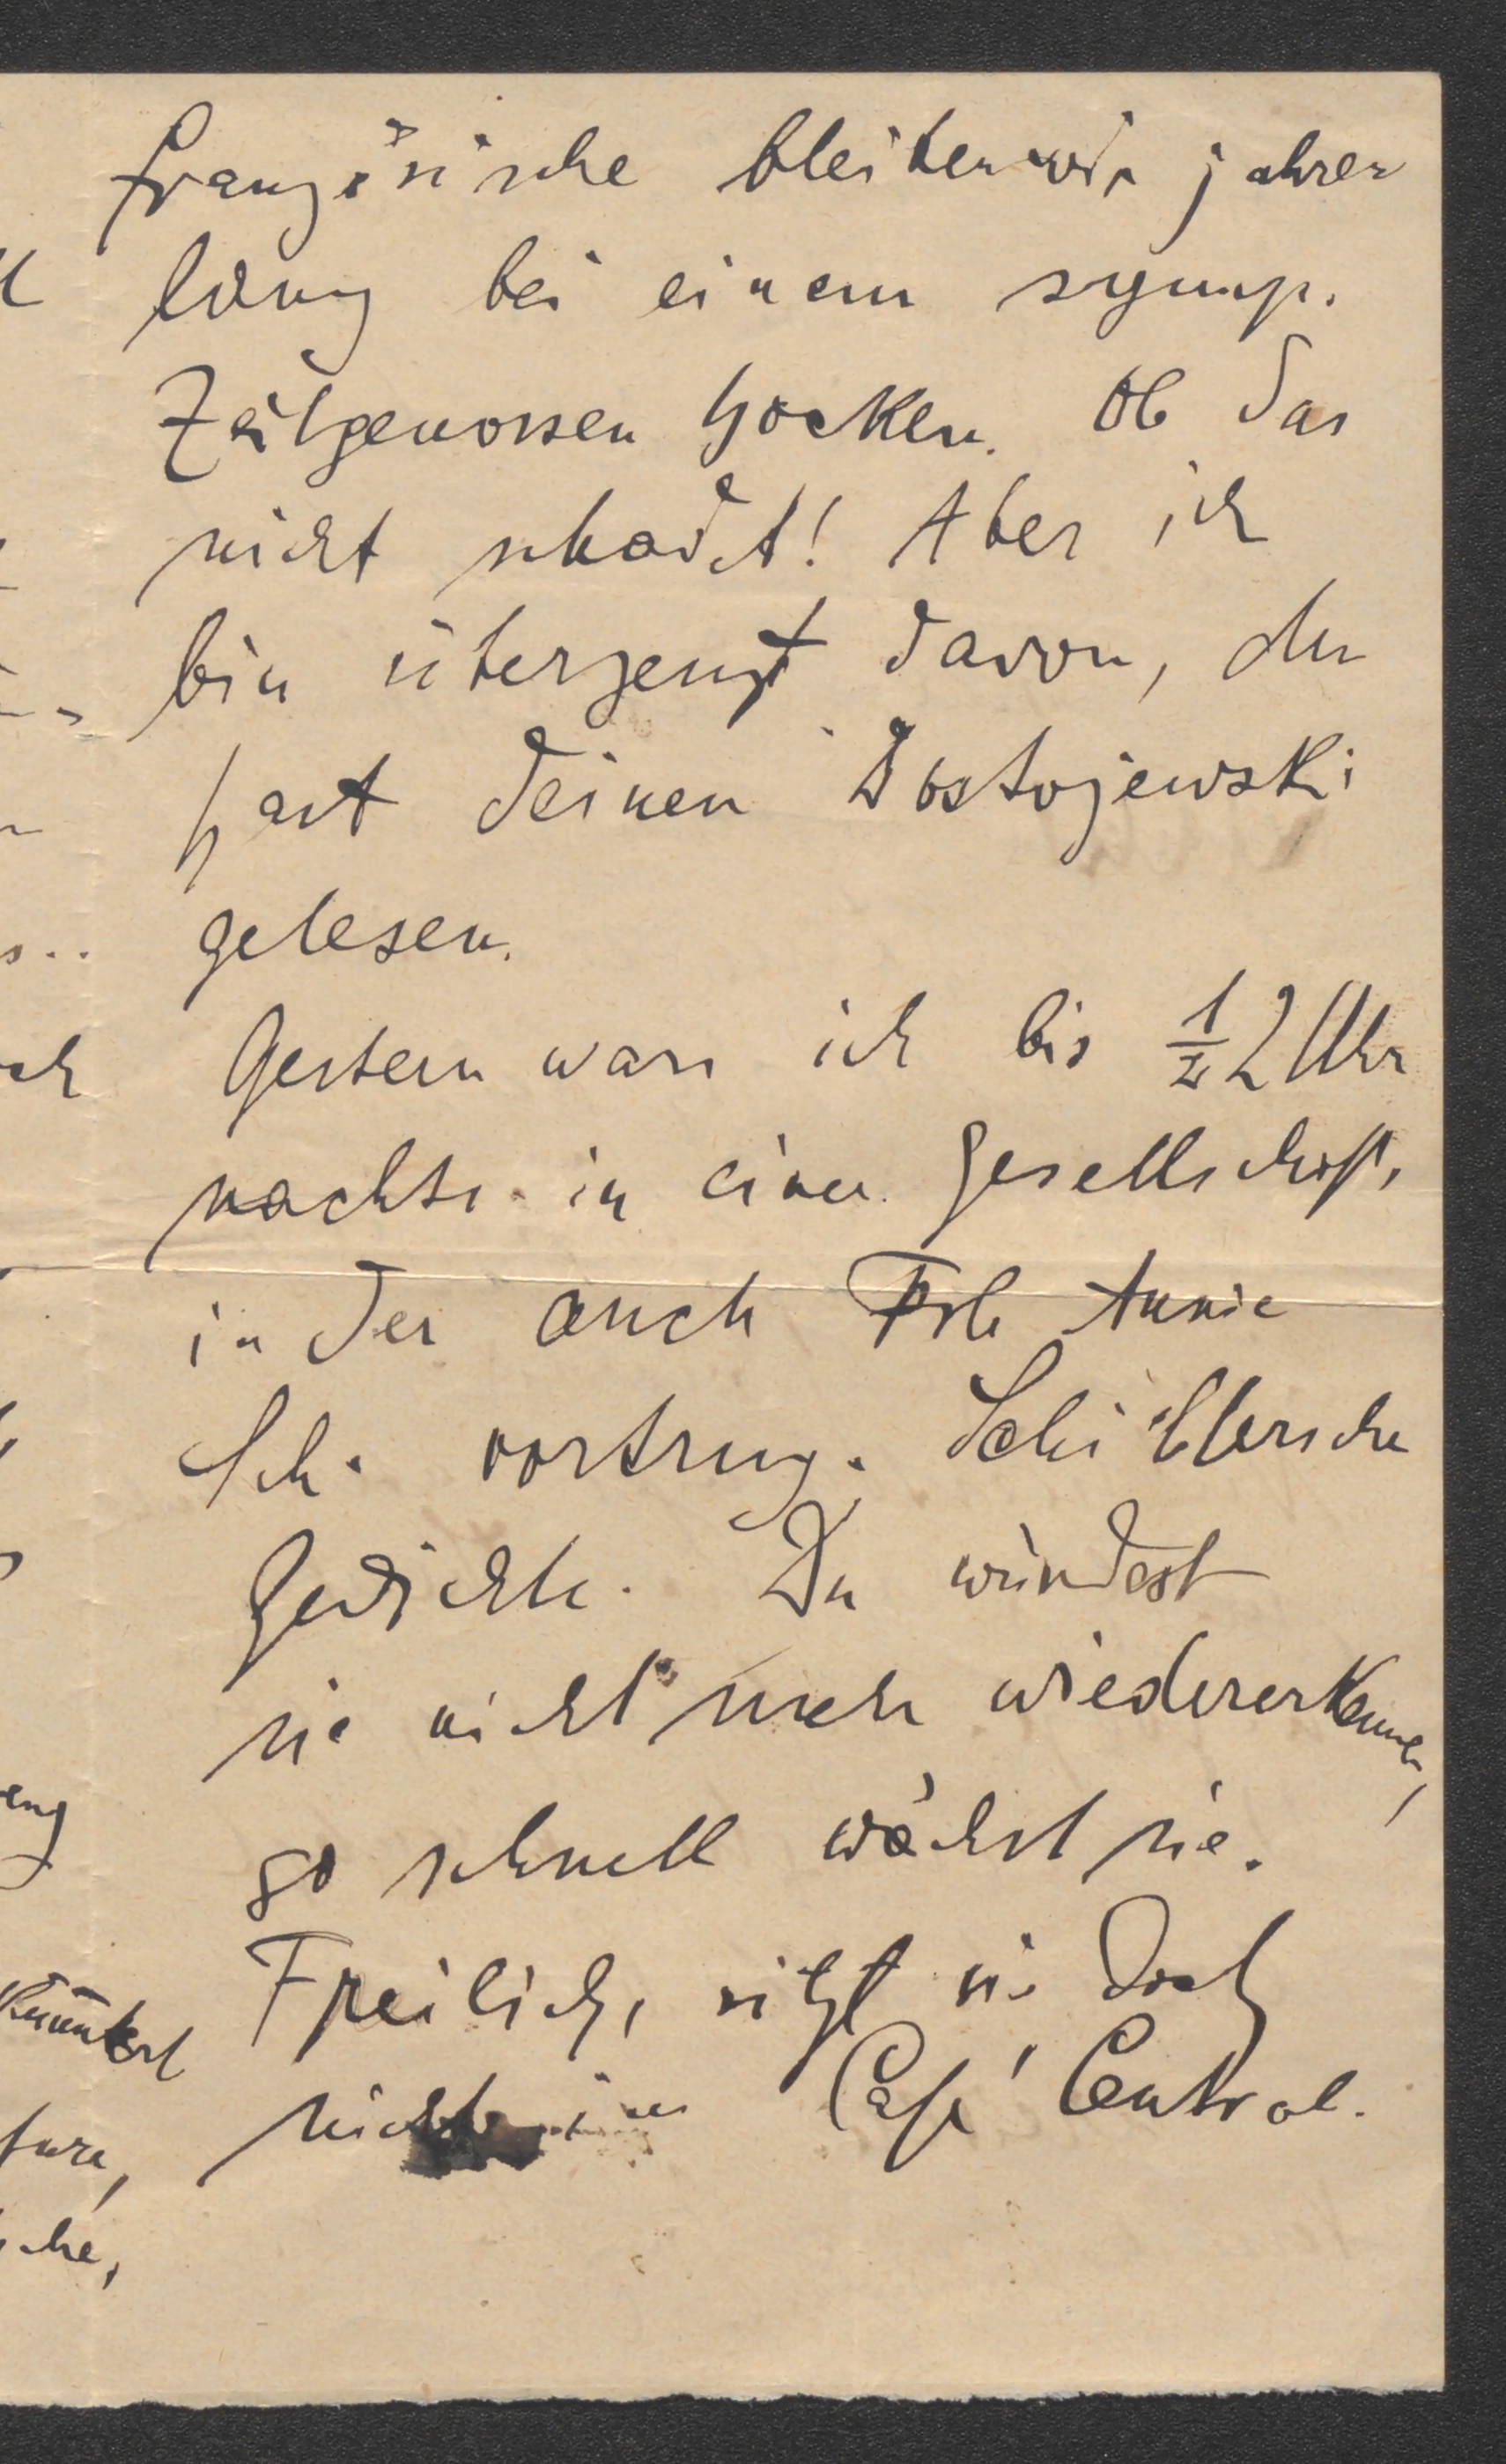 französische bleiben wir jahre
lang bei einem symp.
Zeitgenossen hocken. Ob das
nicht schadet! Aber ich
bin überzeugt davon, du
hast deinen Dostojewski
gelesen.
Gestern war ich bis 1/2 2 Uhr
nachts in einer Gesellschaft,
in der auch Frl. Annie
Sch. vortrug. Schillersche
Gedichte. Du würdest
sie nicht mehr wiedererkennen,
so schnell wächst sie.
Freilich, sitzt sie doch
nicht im Café Central.